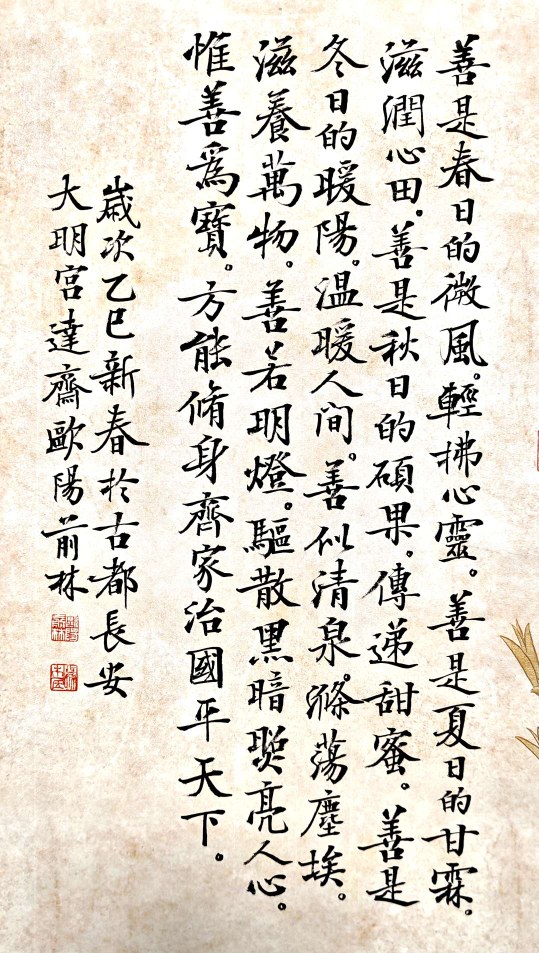 善是春日的微風。輕拂心靈。善是夏日的甘霖。
滋潤心田。善是秋日的碩果。傳递甜蜜。善是
冬日的暖陽。温暖人间。善似清泉。滌蕩塵埃。
滋養萬物。善若明燈。驅散黑暗照亮人心。
惟善爲寶。方能脩身齊家治國平天下。
歲次乙巳新春於古都長安
大明宫達齋歐陽前林